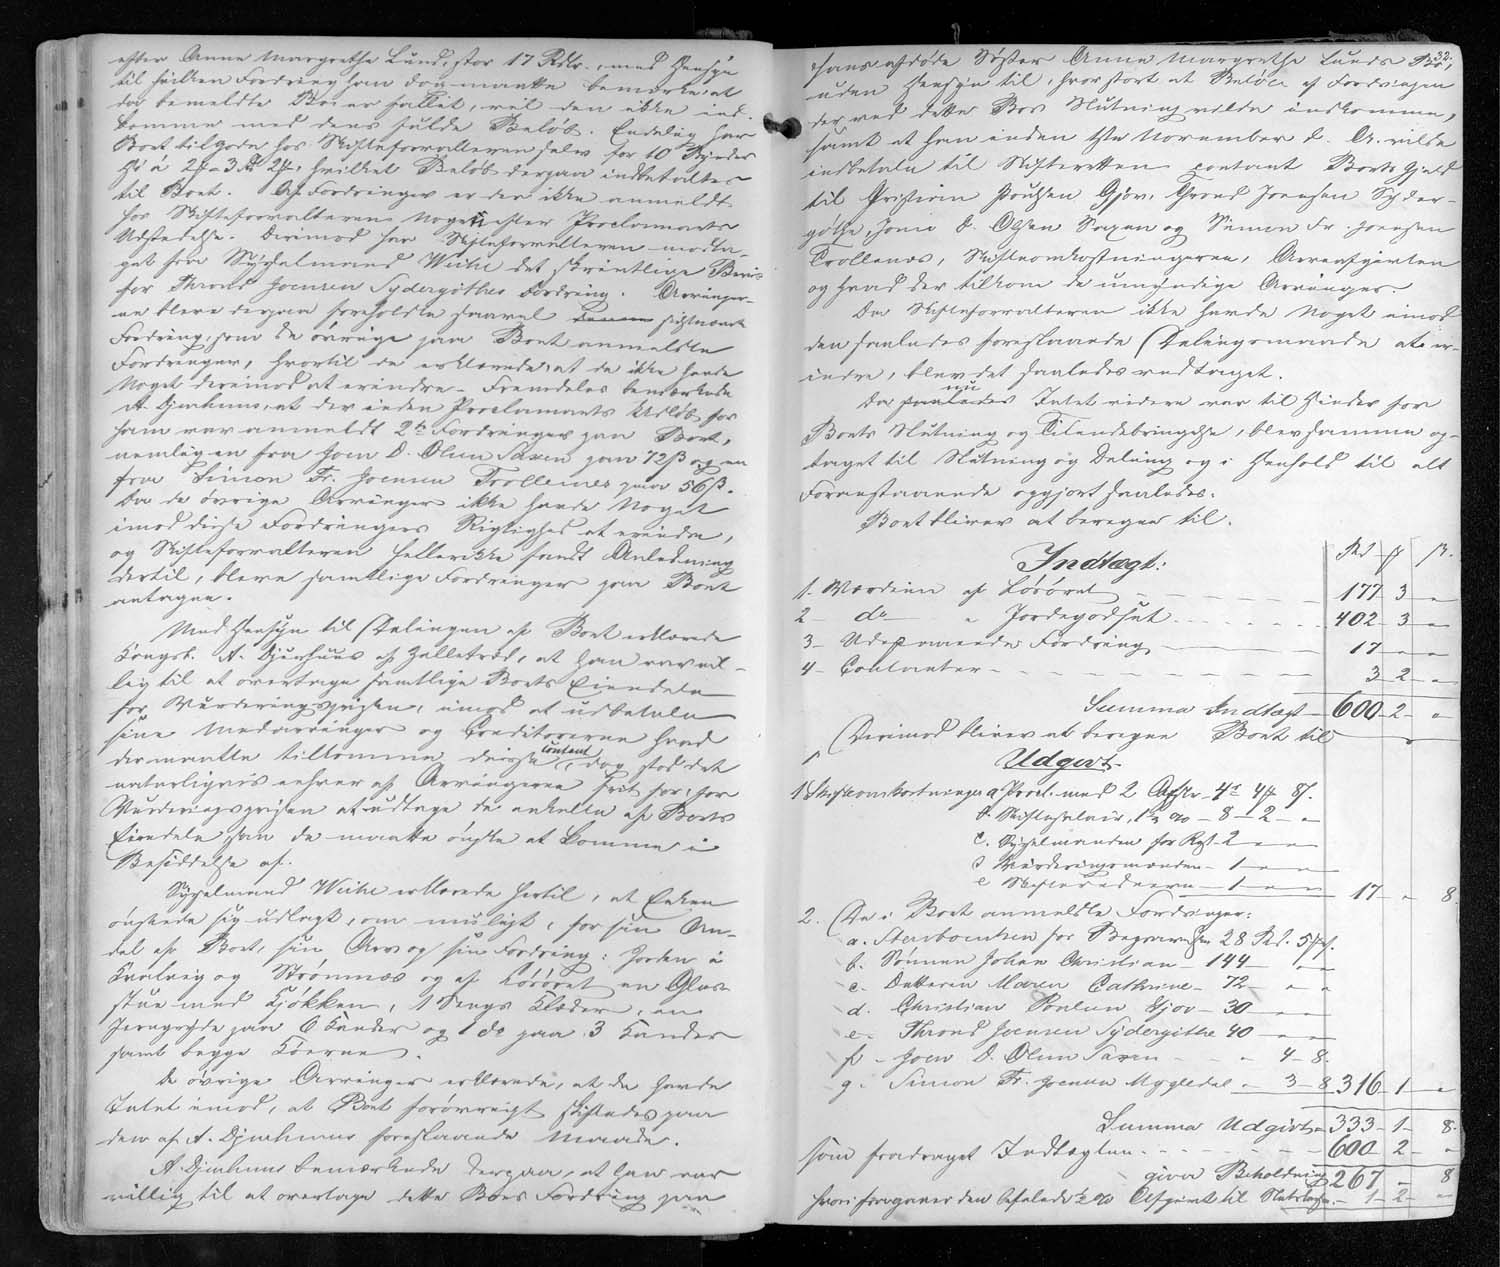 efter Anne Margrethe Lund, stor 17 Rdlr., med Hensyn
til hvilken Fordring han dog maatte bemærke, at
da bemeldte Bo er fallit, vil den ikke ind-
komme med dens fulde Beløb. Endelig har
Boet tilgode hos Skifteforvalteren selv for 10
Hø á 2 - 3 Rd 2, hvilket Beløb derpaa indbetaltes
til Boet. Af Fordringer er der ikke anmeldt
hos Skifteforvalteren nogen efter Proclamaets
Udstedelse. Derimod har Skifteforvalteren modta-
get fra Sysselmand Weihe det skriftlige Beviis
for Thrond Joensen Sydergøthes Fordring. Arvinger-
ne bleve derpaa foreholdte saavel sidstnævnte
Fordring, som de øvrige paa Boet anmeldte
Fordringer, hvortil de erklærede, at de ikke havde
Noget derimod at erindre. Fremdeles bemærkede
A. Djurhuus, at der inden Proclamaets Udløb for
ham var anmeldt 2de Fordringer paa Boet,
nemlig en fra Joen D. Olsen Saxen paa 72 β og en
fra Simon Fr. Joensen Trollenes paa 56 β.
Da de øvrige Arvinger ikke havde Noget
imod disse Fordringers Rigtighed at erindre,
og Skifteforvalteren hellerikke fandt Anledning
dertil, bleve samtlige Fordringer paa Boet
antagne.
Med Hensyn til Delingen af Boet erklærede
Kongsb. A. Djurhuus af Zelletræd, at han var vil-
lig til at overtage samtlige Boets Eiendele
for Vurderingsprisen, imod at udbetale
sine Medarvinger og Creditorerne hvad
der maatte tilkomme disse contant, dog stod det
naturligvis enhver af Arvingerne frit for, for
Vurderingsprisen at udtage de enkelte af Boets
Eiendele han de maatte ønske at komme i
Besiddelse af.
Sysselmand Weihe erklærede hertil, at Enken
ønskede sig udlagt, om muligt, for sin An-
del af Boet, sin Arv og sin Fordring: Jorden i
Kvalvig og Strømnæs og af Løsøret en Glas-
stue med Kjøkken, 1 Sengs Klæder, en
Jerngryde paa 6 Kander og do paa 3 Kander
samt begge Køerne.
De øvrige Arvinger erklærede, at de havde
Intet imod, at Boet forøvrigt skiftedes paa
den af A. Djurhuus foreslaaede Maade.
A. Djurhuus bemærkede derpaa, at han var
villig til at overtage dette Boes Fordring paa
32.
hans afdøde Søster Anne Margrethe Lunds Bo,
uden Hensyn til, hvor stort et Beløb af Fordringen
der ved dette Bos Slutning vilde indkomme,
samt at han inden November d. A. vilde
indbetale til Skifteretten contant Boets Gjæld
til Christian Poulsen Gjov, Thrond Joensen Syder-
gøthe, Joen D. Olsen Saxen og Simon Fr. Joensen
Trollenæs, Skifteomkostningerne, Arveafgiften
og hvad der tilkom de umyndige Arvinger.
Da Skifteforvalteren ikke havde Noget imod
den saaledes foreslaaede Delingsmaade at er-
indre, blev det saaledes vedtaget.
Da saaledes nu Intet videre var til Hinder for
Boets Slutning og Tilendebringelse, blev samme op-
taget til Slutning og Deling og i Henhold til alt
Foranstaaende opgjort saaledes.
Boet bliver at beregne til.
Indtægt: Rd β
1. Værdien af Løsøret 177 - 3 - "
2 - do - " Jordegodset 402 - 3 - "
3 - Udestaaende Fordring 17 - " - "
4 - Contanter 3 2 - "
Summa Indtægt - 600 - 2 - "
Derimod bliver at beregne Boet til
Udgivt.
1 Skifteomkostninger a Procl. med 2 - 4 4 8 β.
b. Skiftesalair, 1½ % - 8 - 2 - "
c. Sysselmanden for Rgt. 2 - " - "
d Vurderingsmændene - 1 - " - "
e Skifte - 1 - " - " 17 - " 8.
2. De i Boet anmeldte Fordringer:
a. for Begravelsen 28 Rd. 5
b. Sønnen Johan Christian - 144 - " - "
c - Datteren Maren Cathrine - 72 - " "
d. Christian Poulsen Gjov - 30 - " - "
e - Thrond Joensen Sydergøthe 40 - " - "
f - Joen D. Olsen Saxen - - " 4 - 8.
g. Simon Fr. Joensen Mygledal - " 3 - 8 316 - 1 - "
Summa Udgivt - 333 - 1 - 8.
som fradraget Indtægten 600 - 2 - "
giver Beholdning 267 - " 8
hvori fragaaer den befalede ½ % Afgivt til - 1 - 2 - "